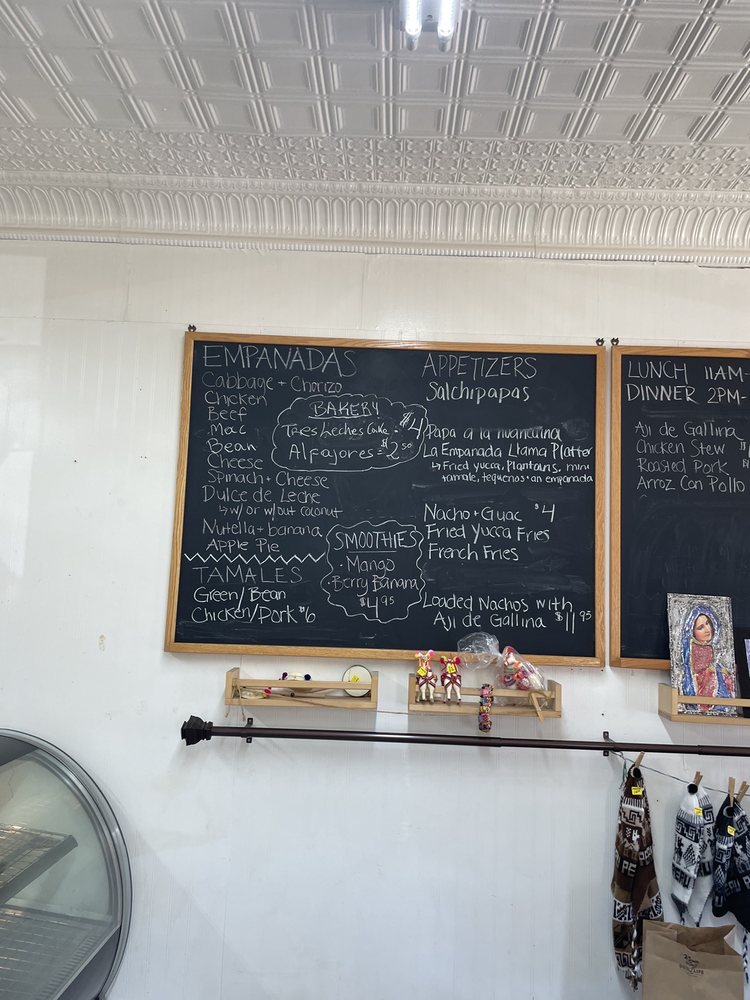 EMPANADAS
Cabbage + Chorizo
Chicken
Beef
Mac
Bean
Cheese
Spinach + Cheese
Dulce de Leche
↳ w/ or w/out coconut
Nutella + banana
Apple Pie
TAMALES
Green/Bean
Chicken/Pork $6
BAKERY
Tres Leches Cake = $4
Alfajores = $2.50
SMOOTHIES
• Mango
• Berry Banana
$4.95
APPETIZERS
Salchipapas
Papa a la huancaina
La Empanada Llama Platter
↳ Fried yucca, Plantains, mini
tamale, tequenos + an empanada
Nacho + Guac $4
Fried Yucca Fries
French Fries
Loaded Nachos with
Aji de Gallina $11.95
LUNCH 11AM-
DINNER 2PM-
Aji de Gallina
Chicken Stew
Roasted Pork
Arroz Con Pollo
PERU
PERU